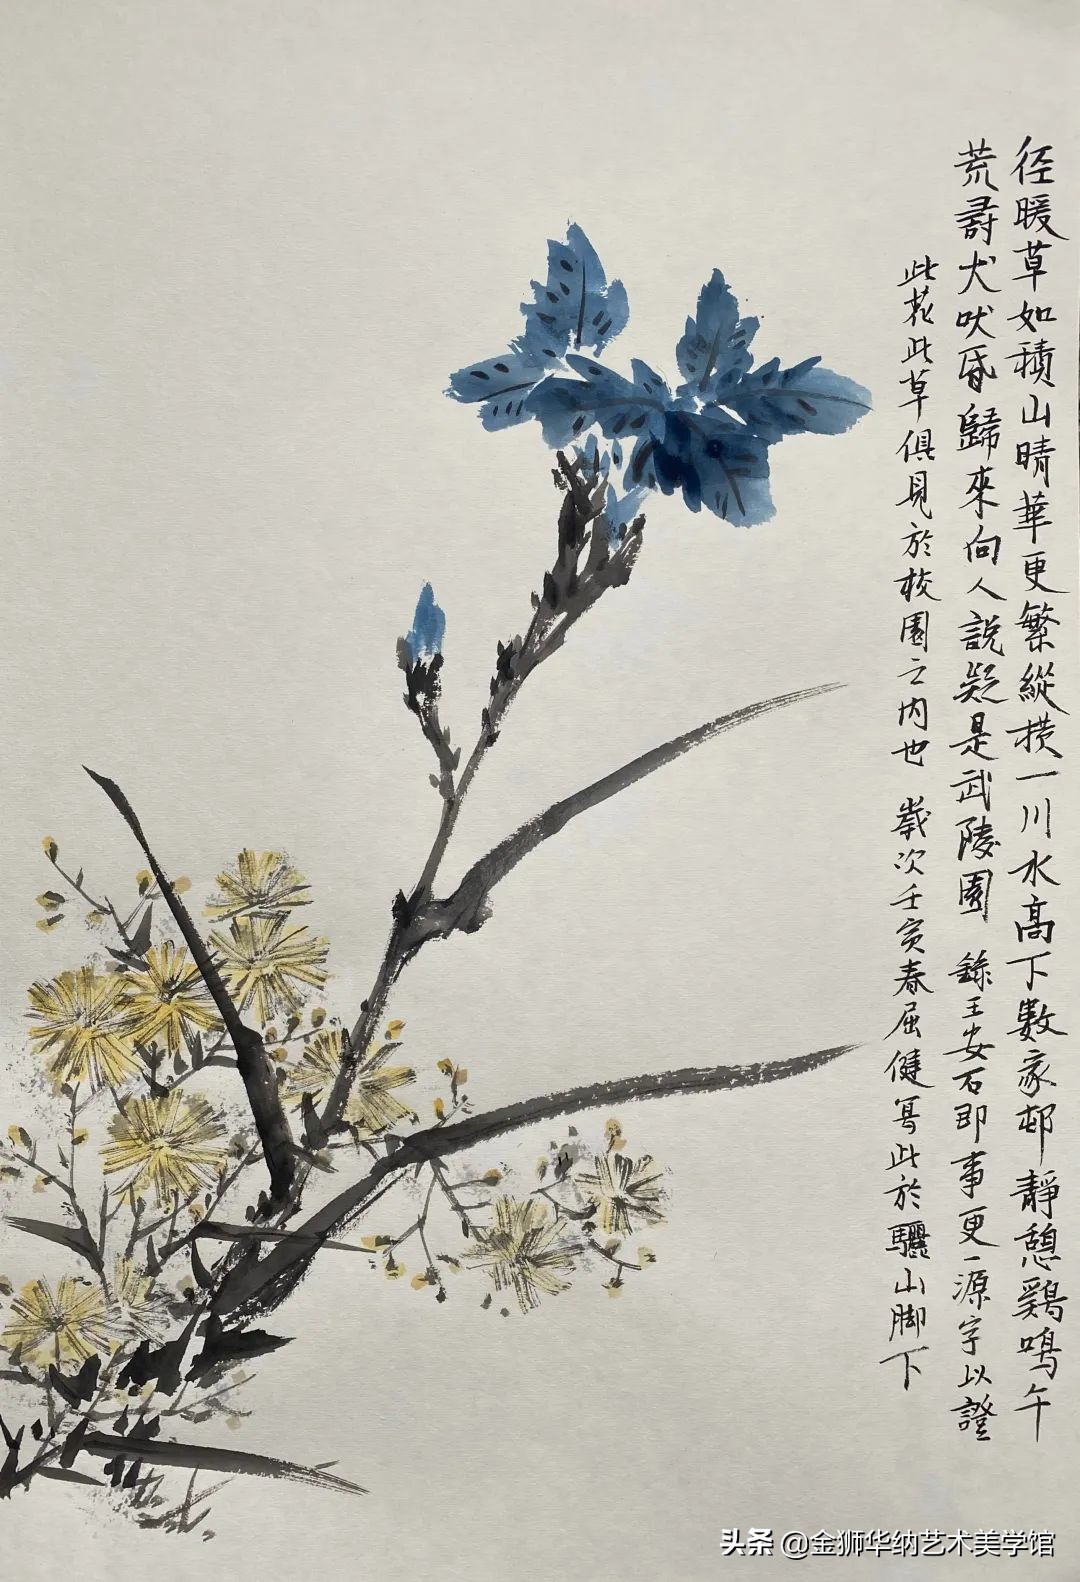 径暖草如積山晴華更繁縱橫一川水高下數家邨靜憩鷄鳴午
荒尋犬吠昏歸來向人說疑是武陵園 錄王安石即事更一源字以證
此花此草俱見於校園之内也 歲次壬寅春屈健寫此於驪山脚下
头条 @金狮华纳艺术美学馆